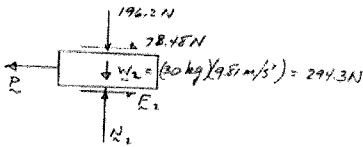 196.2 N
78.48 N
P
W₂ = (30 kg)(9.81 m/s²) = 294.3 N
F₂
N₂